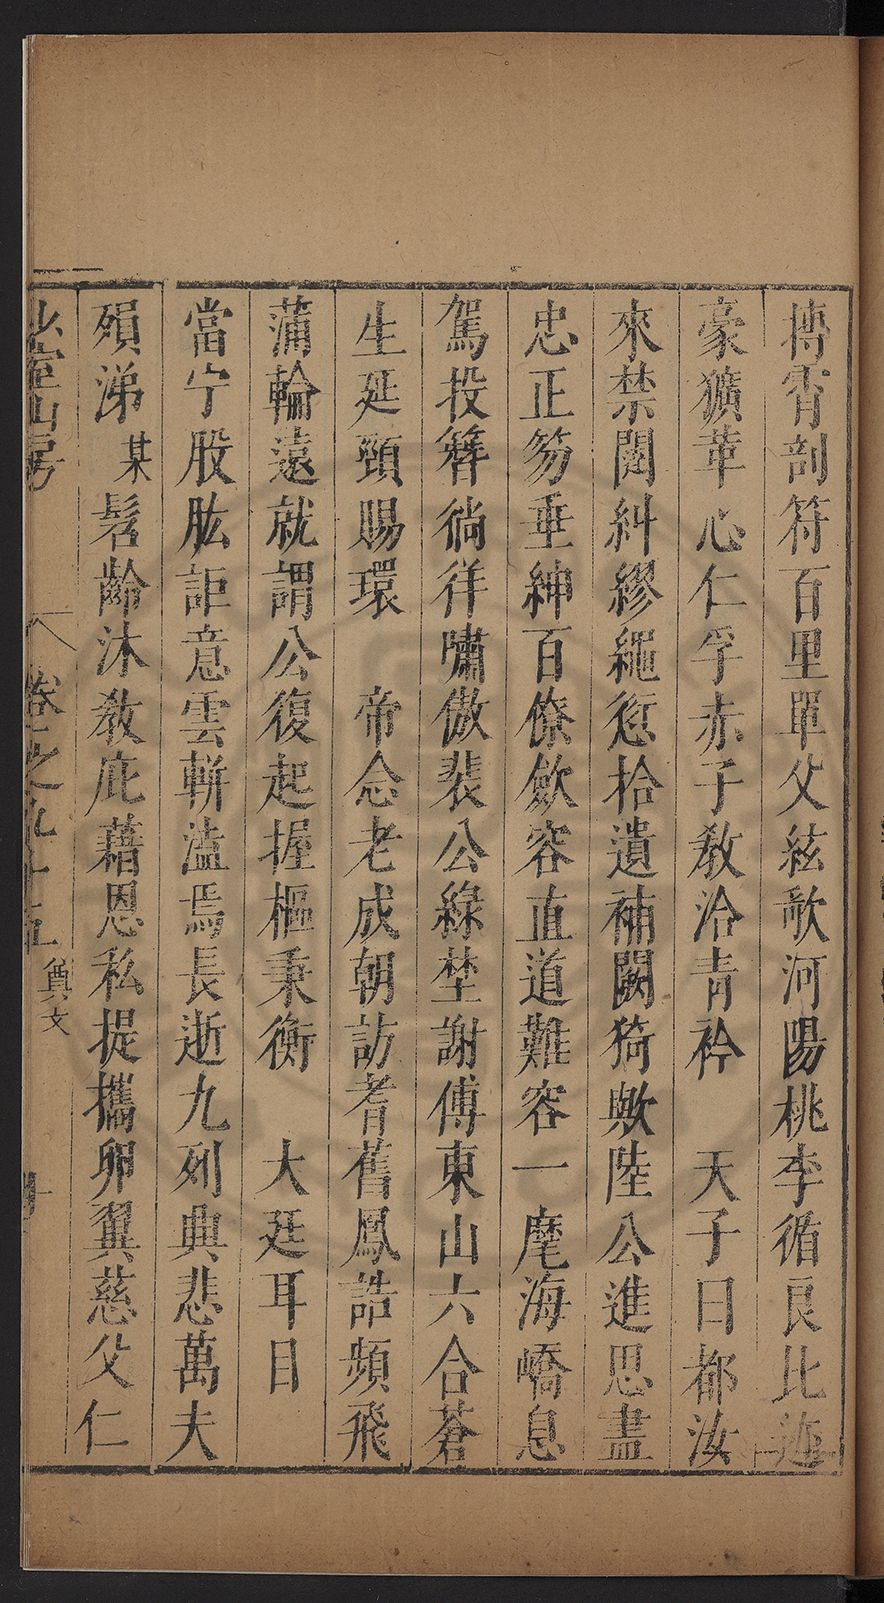 摶霄剖符百里單父絃歌河陽桃李循良比迹
豪獷革心仁孚赤子教洽青衿　天子曰都汝
來禁闥糾繆繩愆拾遺補闕猗歟陸公進思盡
忠正笏垂紳百僚歛容直道難容一麾海嶠息
駕投簪徜徉嘯傲裴公綠埜謝傅東山六合蒼
生延頸賜環　帝念老成朝訪耆舊鳳誥頻飛
蒲輪遠就謂公復起握樞秉衡　大廷耳目
當宁股肱詎意雲軿溘焉長逝九列典悲萬夫
殞涕某髫齡沐教庇藉恩私提攜卵翼慈父仁
少室山房　卷之九十五　奠文　十